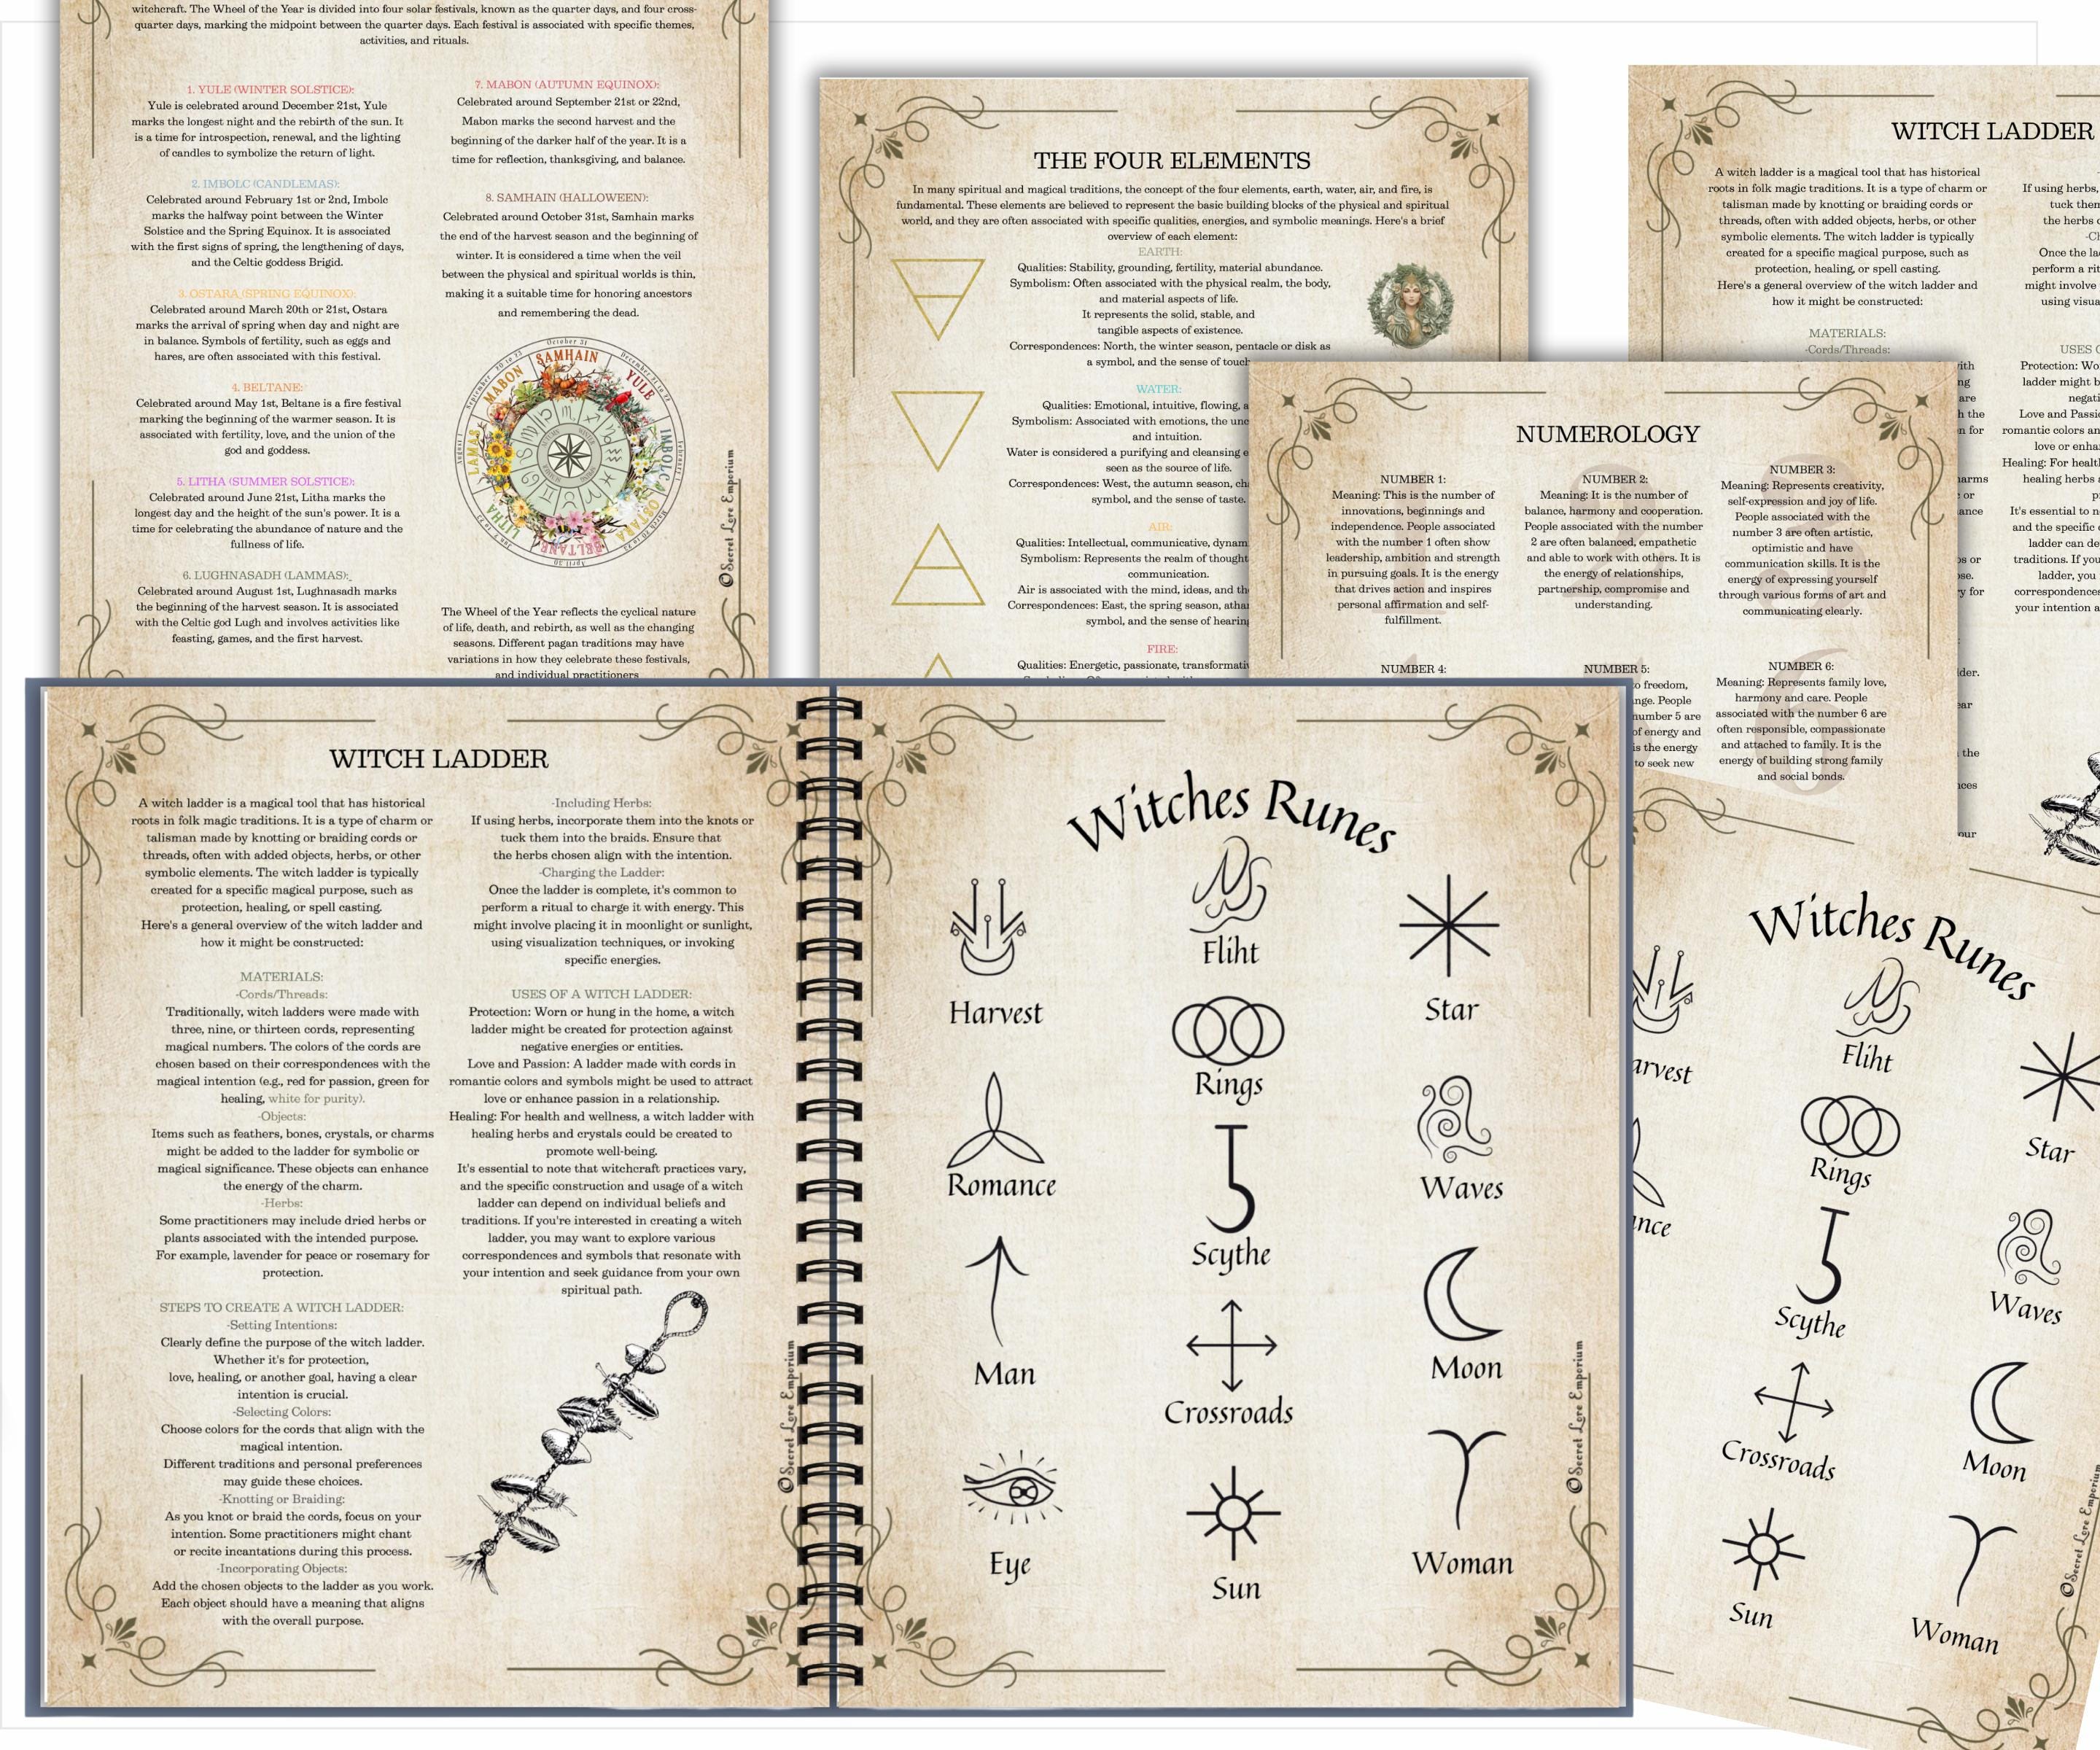 witchcraft. The Wheel of the Year is divided into four solar festivals, known as the quarter days, and four cross-
quarter days, marking the midpoint between the quarter days. Each festival is associated with specific themes,
activities, and rituals.
1. YULE (WINTER SOLSTICE):
Yule is celebrated around December 21st, Yule
marks the longest night and the rebirth of the sun. It
is a time for introspection, renewal, and the lighting
of candles to symbolize the return of light.
2. IMBOLC (CANDLEMAS):
Celebrated around February 1st or 2nd, Imbolc
marks the halfway point between the Winter
Solstice and the Spring Equinox. It is associated
with the first signs of spring, the lengthening of days,
and the Celtic goddess Brigid.
3. OSTARA (SPRING EQUINOX):
Celebrated around March 20th or 21st, Ostara
marks the arrival of spring when day and night are
in balance. Symbols of fertility, such as eggs and
hares, are often associated with this festival.
4. BELTANE:
Celebrated around May 1st, Beltane is a fire festival
marking the beginning of the warmer season. It is
associated with fertility, love, and the union of the
god and goddess.
5. LITHA (SUMMER SOLSTICE):
Celebrated around June 21st, Litha marks the
longest day and the height of the sun's power. It is a
time for celebrating the abundance of nature and the
fullness of life.
6. LUGHNASADH (LAMMAS):
Celebrated around August 1st, Lughnasadh marks
the beginning of the harvest season. It is associated
with the Celtic god Lugh and involves activities like
feasting, games, and the first harvest.
7. MABON (AUTUMN EQUINOX):
Celebrated around September 21st or 22nd,
Mabon marks the second harvest and the
beginning of the darker half of the year. It is a
time for reflection, thanksgiving, and balance.
8. SAMHAIN (HALLOWEEN):
Celebrated around October 31st, Samhain marks
the end of the harvest season and the beginning of
winter. It is considered a time when the veil
between the physical and spiritual worlds is thin,
making it a suitable time for honoring ancestors
and remembering the dead.
October 31
SAMHAIN
YULE
IMBOLC
February 1
OSTARA
BELTANE
April 30
LITHA
LAMMAS
August 1
MABON
The Wheel of the Year reflects the cyclical nature
of life, death, and rebirth, as well as the changing
seasons. Different pagan traditions may have
variations in how they celebrate these festivals,
and individual practitioners
©Secret Lore Emporium
THE FOUR ELEMENTS
In many spiritual and magical traditions, the concept of the four elements, earth, water, air, and fire, is
fundamental. These elements are believed to represent the basic building blocks of the physical and spiritual
world, and they are often associated with specific qualities, energies, and symbolic meanings. Here's a brief
overview of each element:
EARTH:
Qualities: Stability, grounding, fertility, material abundance.
Symbolism: Often associated with the physical realm, the body,
and material aspects of life.
It represents the solid, stable, and
tangible aspects of existence.
Correspondences: North, the winter season, pentacle or disk as
a symbol, and the sense of touch
WATER:
Qualities: Emotional, intuitive, flowing, a
Symbolism: Associated with emotions, the unc
and intuition.
Water is considered a purifying and cleansing e
seen as the source of life.
Correspondences: West, the autumn season, ch
symbol, and the sense of taste.
AIR:
Qualities: Intellectual, communicative, dynam
Symbolism: Represents the realm of thought
communication.
Air is associated with the mind, ideas, and th
Correspondences: East, the spring season, atha
symbol, and the sense of hearing
FIRE:
Qualities: Energetic, passionate, transformativ
NUMEROLOGY
NUMBER 1:
Meaning: This is the number of
innovations, beginnings and
independence. People associated
with the number 1 often show
leadership, ambition and strength
in pursuing goals. It is the energy
that drives action and inspires
personal affirmation and self-
fulfillment.
NUMBER 2:
Meaning: It is the number of
balance, harmony and cooperation.
People associated with the number
2 are often balanced, empathetic
and able to work with others. It is
the energy of relationships,
partnership, compromise and
understanding.
NUMBER 3:
Meaning: Represents creativity,
self-expression and joy of life.
People associated with the
number 3 are often artistic,
optimistic and have
communication skills. It is the
energy of expressing yourself
through various forms of art and
communicating clearly.
NUMBER 4:
NUMBER 5:
o freedom,
nge. People
number 5 are
of energy and
is the energy
to seek new
NUMBER 6:
Meaning: Represents family love,
harmony and care. People
associated with the number 6 are
often responsible, compassionate
and attached to family. It is the
energy of building strong family
and social bonds.
WITCH LADDER
A witch ladder is a magical tool that has historical
roots in folk magic traditions. It is a type of charm or
talisman made by knotting or braiding cords or
threads, often with added objects, herbs, or other
symbolic elements. The witch ladder is typically
created for a specific magical purpose, such as
protection, healing, or spell casting.
Here's a general overview of the witch ladder and
how it might be constructed:
MATERIALS:
-Cords/Threads:
If using herbs,
tuck them
the herbs c
-Ch
Once the la
perform a rit
might involve
using visua
USES O
Protection: Wo
ladder might b
negati
Love and Passio
romantic colors an
love or enhan
Healing: For health
healing herbs a
It's essential to n
and the specific
ladder can de
traditions. If you
ladder, you
correspondences
your intention a
WITCH LADDER
A witch ladder is a magical tool that has historical
roots in folk magic traditions. It is a type of charm or
talisman made by knotting or braiding cords or
threads, often with added objects, herbs, or other
symbolic elements. The witch ladder is typically
created for a specific magical purpose, such as
protection, healing, or spell casting.
Here's a general overview of the witch ladder and
how it might be constructed:
MATERIALS:
-Cords/Threads:
Traditionally, witch ladders were made with
three, nine, or thirteen cords, representing
magical numbers. The colors of the cords are
chosen based on their correspondences with the
magical intention (e.g., red for passion, green for
healing, white for purity).
-Objects:
Items such as feathers, bones, crystals, or charms
might be added to the ladder for symbolic or
magical significance. These objects can enhance
the energy of the charm.
-Herbs:
Some practitioners may include dried herbs or
plants associated with the intended purpose.
For example, lavender for peace or rosemary for
protection.
STEPS TO CREATE A WITCH LADDER:
-Setting Intentions:
Clearly define the purpose of the witch ladder.
Whether it's for protection,
love, healing, or another goal, having a clear
intention is crucial.
-Selecting Colors:
Choose colors for the cords that align with the
magical intention.
Different traditions and personal preferences
may guide these choices.
-Knotting or Braiding:
As you knot or braid the cords, focus on your
intention. Some practitioners might chant
or recite incantations during this process.
-Incorporating Objects:
Add the chosen objects to the ladder as you work.
Each object should have a meaning that aligns
with the overall purpose.
-Including Herbs:
If using herbs, incorporate them into the knots or
tuck them into the braids. Ensure that
the herbs chosen align with the intention.
-Charging the Ladder:
Once the ladder is complete, it's common to
perform a ritual to charge it with energy. This
might involve placing it in moonlight or sunlight,
using visualization techniques, or invoking
specific energies.
USES OF A WITCH LADDER:
Protection: Worn or hung in the home, a witch
ladder might be created for protection against
negative energies or entities.
Love and Passion: A ladder made with cords in
romantic colors and symbols might be used to attract
love or enhance passion in a relationship.
Healing: For health and wellness, a witch ladder with
healing herbs and crystals could be created to
promote well-being.
It's essential to note that witchcraft practices vary,
and the specific construction and usage of a witch
ladder can depend on individual beliefs and
traditions. If you're interested in creating a witch
ladder, you may want to explore various
correspondences and symbols that resonate with
your intention and seek guidance from your own
spiritual path.
©Secret Lore Emporium
Witches Runes
Harvest
Fliht
Star
Rings
Romance
Waves
Scythe
Man
Moon
Crossroads
Eye
Sun
Woman
©Secret Lore Emporium
Witches Runes
arvest
Fliht
Star
Rings
ance
Waves
Scythe
Crossroads
Moon
Sun
Woman
©Secret Lore Emporium